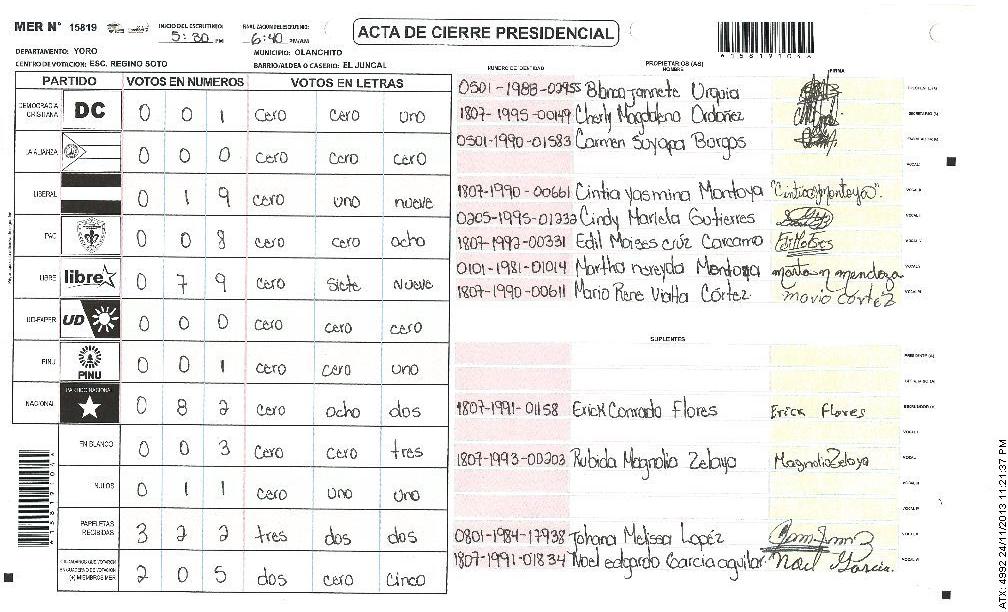 MER N° 15819 INICIO DEL ESCRUTINIO: 5:30 PM FINALIZACION DEL ESCRUTINIO: 6:40 PM/AM
ACTA DE CIERRE PRESIDENCIAL
DEPARTAMENTO: YORO MUNICIPIO: OLANCHITO
CENTRO DE VOTACION: ESC. REGINO SOTO BARRIO/ALDEA O CASERIO: EL JUNCAL
PARTIDO VOTOS EN NUMEROS VOTOS EN LETRAS
DEMOCRACIA CRISTIANA DC 0 0 1 cero cero uno
LA ALIANZA 0 0 0 cero cero cero
LIBERAL 0 1 9 cero uno nueve
PAC 0 0 8 cero cero ocho
LIBRE libre 0 7 9 cero siete nueve
UD-FAPER UD 0 0 0 cero cero cero
PINU PINU 0 0 1 cero cero uno
NACIONAL PARTIDO NACIONAL 0 8 2 cero ocho dos
EN BLANCO 0 0 3 cero cero tres
NULOS 0 1 1 cero uno uno
PAPELETAS RECIBIDAS 3 2 2 tres dos dos
CIUDADANOS QUE VOTARON EN CUADERNO DE VOTACION (+) MIEMBROS MER 2 0 5 dos cero cinco
NUMERO DE IDENTIDAD PROPIETARIOS (AS) NOMBRE FIRMA
Blanca Jannete Urquia
1807-1995-00149 Cherly Magdalena Ordoñez
0501-1990-01583 Carmen Suyapa Burgos
1807-1990-00661 Cintia Yasmina Montoya "Cintia y montoya".
0205-1995-01332 Cindy Mariela Gutierres
1807-1992-00331 Edil Moises cruz Carcamo
0101-1981-01014 Martha nereyda
1807-1990-00611 Mario Rene Córtez mario cortéz
SUPLENTES
1807-1991-01158 Erick Conrado Flores Erick Flores
1807-1993-00203 Rubida Magnolia Zelaya Magnolia Zelaya
0801-1984-17938 Johana Melissa Lopéz
1807-1991-01834 Noel edgardo Garcia aguilar. Noel Garcia.
A158191043
ATX: 4992 24/11/2013 11:21:37 PM